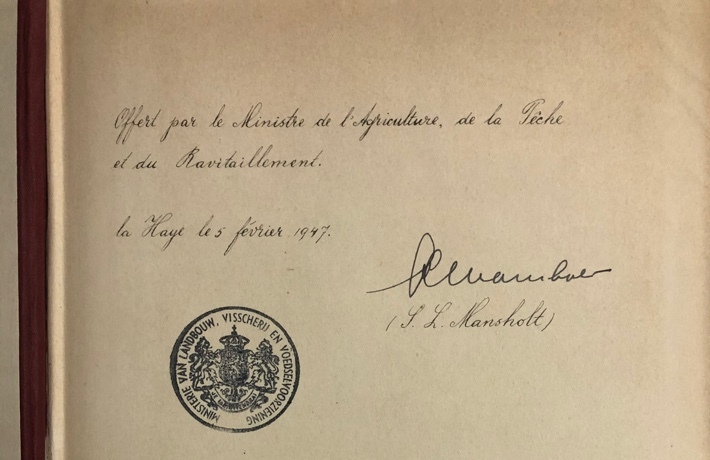 Offert par le Ministre de l'Agriculture, de la Pêche
et du Ravitaillement.
la Haye le 5 février 1947.
(S. L. Mansholt)
MINISTERIE VAN LANDBOUW, VISSCHERIJ EN VOEDSELVOORZIENING